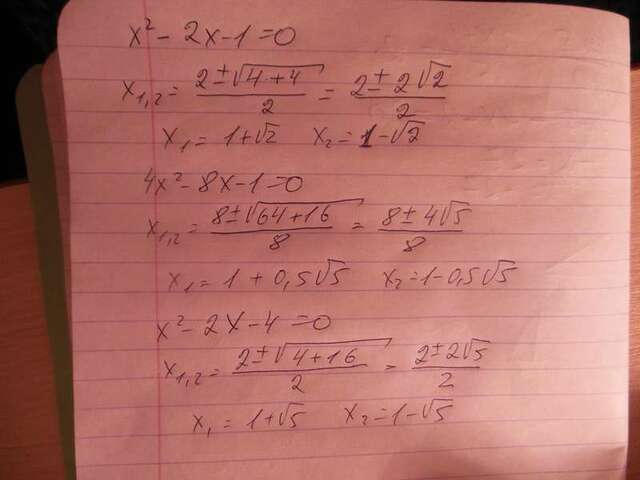 x² - 2x - 1 = 0
x₁,₂ = (2 ± √(4 + 4))/2 = (2 ± 2√2)/2
x₁ = 1 + √2 x₂ = 1 - √2
4x² - 8x - 1 = 0
x₁,₂ = (8 ± √(64 + 16))/8 = (8 ± 4√5)/8
x₁ = 1 + 0,5√5 x₂ = 1 - 0,5√5
x² - 2x - 4 = 0
x₁,₂ = (2 ± √(4 + 16))/2 = (2 ± 2√5)/2
x₁ = 1 + √5 x₂ = 1 - √5